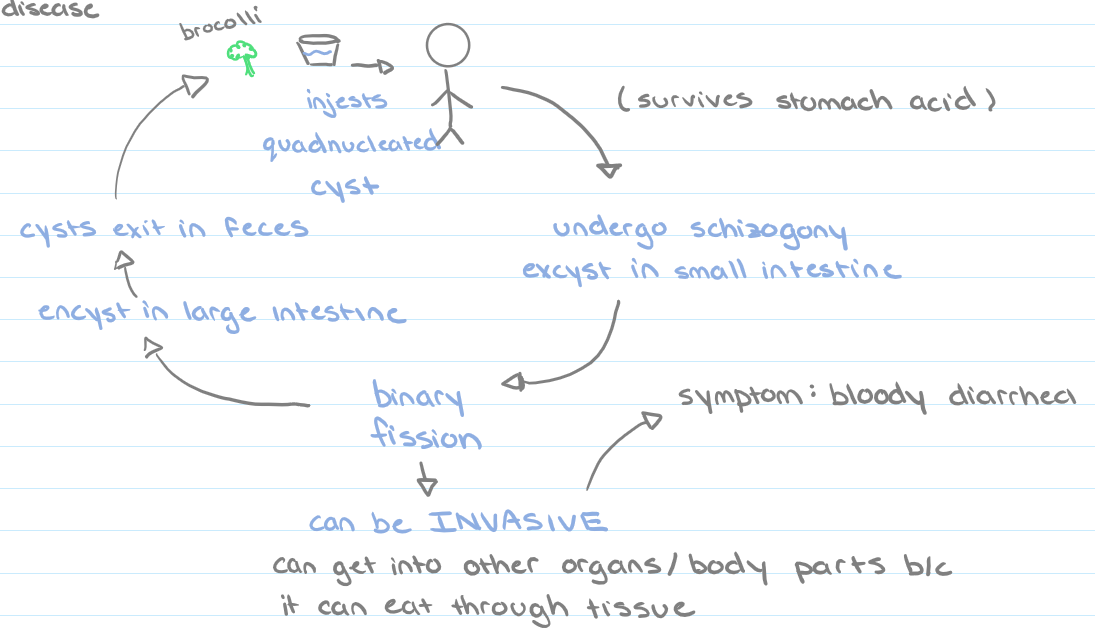 disease
brocolli
injests
quadnucleated
cyst
(survives stomach acid)
undergo schizogony
excyst in small intestine
binary
fission
encyst in large intestine
cysts exit in feces
can be INVASIVE
can get into other organs/body parts b/c
it can eat through tissue
symptom: bloody diarrhea